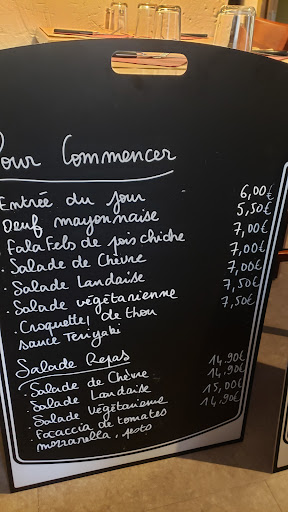 Pour Commencer
Entrée du jour 6,00€
Oeuf mayonnaise 5,50€
. Falafels de pois chiche 7,00€
. Salade de Chèvre 7,00€
. Salade Landaise 7,00€
. Salade végétarienne 7,50€
. Croquette de thon 7,50€
sauce Teriyaki
Salade Repas
. Salade de Chèvre 14,90€
. Salade Landaise 14,90€
. Salade Végétarienne 15,00€
. Focaccia de tomates 14,90€
mozzarella, pesto